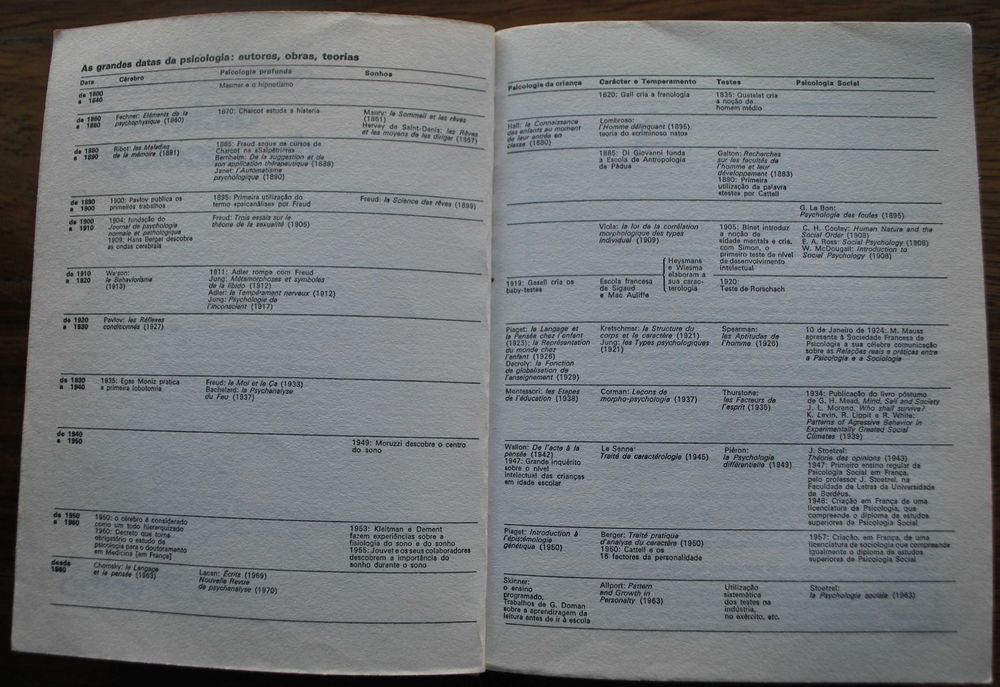 As grandes datas da psicologia: autores, obras, teorias
Data
Cérebro
Psicologia profunda
Sonhos
de 1800
a 1840
Mesmer e o hipnotismo
de 1860
a 1880
Fechner: Eléments de la
psychophysique (1860)
1870: Charcot estuda a histeria
Maury: le Sommeil et les rêves
(1861)
Hervey de Saint-Denis: les Rêves
et les moyens de les diriger (1867)
de 1880
a 1890
Ribot: les Maladies
de la mémoire (1881)
1885: Freud segue os cursos de
Charcot na «Salpêtrière»
Bernheim: De la suggestion et de
son application thérapeutique (1888)
Janet: l'Automatisme
psychologique (1890)
de 1890
a 1900
1900: Pavlov publica os
primeiros trabalhos
1895: Primeira utilização do
termo «psicanálise» por Freud
Freud: la Science des rêves (1899)
de 1900
a 1910
1904: fundação do
Journal de psychologie
normale et pathologique
1909: Hans Berger descobre
as ondas cerebrais
Freud: Trois essais sur la
théorie de la sexualité (1905)
de 1910
a 1920
Watson:
le Behaviorisme
(1913)
1911: Adler rompe com Freud
Jung: Métamorphoses et symboles
de la libido (1912)
Adler: le Tempérament nerveux (1912)
Jung: Psychologie de
l'inconscient (1917)
de 1920
a 1930
Pavlov: les Réflexes
conditionnés (1927)
de 1930
a 1940
1935: Egas Moniz pratica
a primeira lobotomia
Freud: le Moi et le Ça (1933)
Bachelard: la Psychanalyse
du Feu (1937)
de 1940
a 1950
1949: Moruzzi descobre o centro
do sono
de 1950
a 1960
1950: o cérebro é considerado
como um todo hierarquizado
1950: Decreto que torna
obrigatório o estudo da
psicologia para o doutoramento
em Medicina [em França]
1953: Kleitman e Dement
fazem experiências sobre a
fisiologia do sono e do sonho
1955: Jouvet e os seus colaboradores
descobrem a importância do
sonho durante o sono
desde
1960
Chomsky: le Langage
et la pensée (1963)
Lacan: Écrits (1969)
Nouvelle Revue
de psychanalyse (1970)
Psicologia da criança
Carácter e Temperamento
Testes
Psicologia Social
1820: Gall cria a frenologia
1835: Quetelet cria
a noção de
homem médio
Hall: la Connaissance
des enfants au moment
de leur entrée en
classe (1880)
Lombroso:
l'Homme délinquant (1895)
teoria do «criminoso nato»
1885: Di Giovanni funda
a Escola de Antropologia
de Pádua
Galton: Recherches
sur les facultés de
l'homme et leur
développement (1883)
1890: Primeira
utilização da palavra
«teste» por Cattell
G. Le Bon:
Psychologie des foules (1895)
Viola: la loi de la corrélation
morphologique des types
individuel (1909)
1905: Binet introduz
a noção de
«idade mental» e cria,
com Simon, o
primeiro teste de nível
de desenvolvimento
intelectual
C. H. Cooley: Human Nature and the
Social Order (1908)
E. A. Ross: Social Psychology (1908)
W. McDougall: Introduction to
Social Psychology (1908)
1919: Gesell cria os
baby-testes
Escola francesa
de Sigaud
e Mac Auliffe
Heysmans
e Wiesma
elaboram a
sua carac-
terologia
1920:
Teste de Rorschach
Piaget: le Langage et
la Pensée chez l'enfant
(1923); la Représentation
du monde chez
l'enfant (1926)
Decroly: la Fonction
de globalisation de
l'enseignement (1929)
Kretschmer: la Structure du
corps et le caractère (1921)
Jung: les Types psychologiques
(1921)
Spearman:
les Aptitudes de
l'homme (1926)
10 de Janeiro de 1924: M. Mauss
apresenta à Sociedade Francesa de
Psicologia a sua célebre comunicação
sobre as Relações reais e práticas entre
a Psicologia e a Sociologia
Montessori: les Etapes
de l'éducation (1938)
Corman: Leçons de
morpho-psychologie (1937)
Thurstone:
les Facteurs de
l'esprit (1935)
1934: Publicação do livro póstumo
de G. H. Mead, Mind, Self and Society
J. L. Moreno, Who shall survive?
K. Levin, R. Lippit e R. White:
Patterns of Agressive Behavior in
Experimentally Greated Social
Climates (1939)
Wallon: De l'acte à la
pensée (1942)
1947: Grande inquérito
sobre o nível
intelectual das crianças
em idade escolar
Le Senne:
Traité de caractérologie (1945)
Piéron:
la Psychologie
différentielle (1949)
J. Stoetzel:
Théorie des opinions (1943)
1947: Primeiro ensino regular de
Psicologia Social em França,
pelo professor J. Stoetzel, na
Faculdade de Letras da Universidade
de Bordéus.
1948: Criação em França de uma
licenciatura de Psicologia, que
compreende o diploma de estudos
superiores de Psicologia Social
Piaget: Introduction à
l'épistémologie
génétique (1950)
Berger: Traité pratique
d'analyse du caractère (1950)
1950: Cattell e os
16 factores da personalidade
1957: Criação, em França, de uma
licenciatura de sociologia que compreende
igualmente o diploma de estudos
superiores de Psicologia Social
Skinner:
o ensino
programado.
Trabalhos de G. Doman
sobre a aprendizagem da
leitura antes de ir à escola
Allport: Pattern
and Growth in
Personalty (1963)
Utilização
sistemática
dos testes na
indústria,
no exército, etc.
Stoetzel:
la Psychologie sociale (1963)